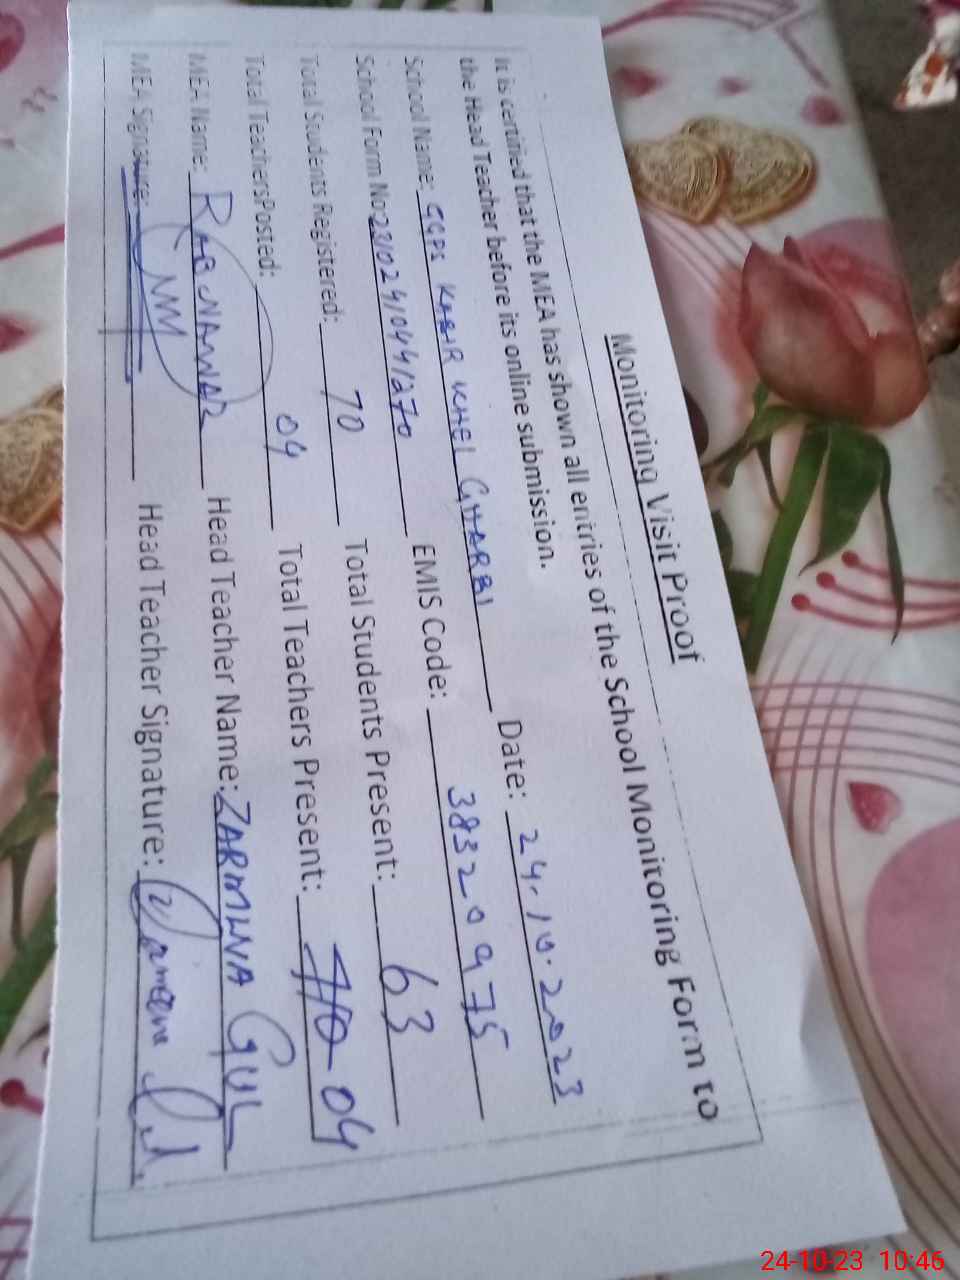 Monitoring Visit Proof
It is certified that the MEA has shown all entries of the School Monitoring Form to
the Head Teacher before its online submission.
School Name: GGPS KABIR KHEL GHARBI Date: 24.10.2023
School Form No: EMIS Code: 38320975
Total Students Registered: 70 Total Students Present: 63
Total TeachersPosted: 04 Total Teachers Present: 04
MEA Name: RAB NAWAZ Head Teacher Name: ZARMINA GUL
MEA Signature: Head Teacher Signature:
24-10-23 10:46